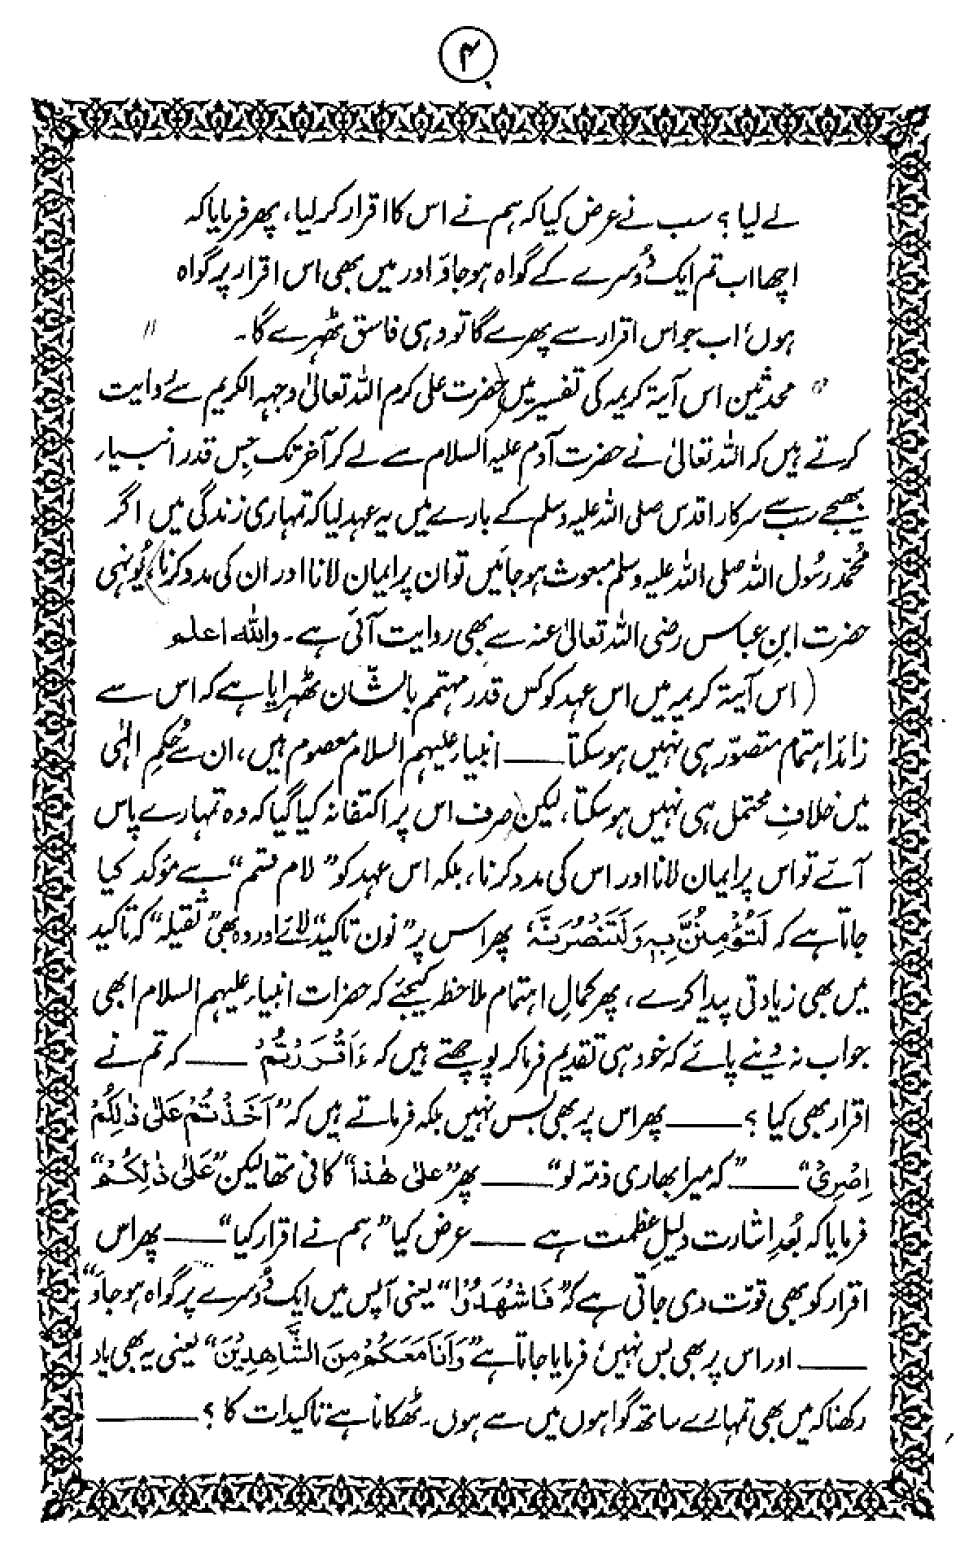 ۴
لے لیا؟ سب نے عرض کیا کہ ہم نے اس کا اقرار کر لیا، پھر فرمایا کہ
اچھا اب تم ایک دُوسرے کے گواہ ہو جاؤ اور میں بھی اس اقرار پر گواہ
ہوں؛ اب جو اس اقرار سے پھرے گا تو وہی فاسق ٹھہرے گا۔ "
" محدثین اس آیۂ کریمہ کی تفسیر میں (حضرت علی کرم اللہ تعالیٰ وجہہ الکریم سے روایت
کرتے ہیں کہ اللہ تعالیٰ نے حضرت آدم علیہ السلام سے لے کر آخر تک جس قدر انبیاء
بھیجے سب سے سرکار اقدس صلی اللہ علیہ وسلم کے بارے میں یہ عہد لیا کہ تمہاری زندگی میں اگر
محمّد رسُول اللہ صلی اللہ علیہ وسلم مبعوث ہو جائیں تو ان پر ایمان لانا اور ان کی مدد کرنا) یُونہی
حضرت ابنِ عباس رضی اللہ تعالیٰ عنہ سے بھی روایت آئی ہے۔ واللہ اعلم
( اس آیۂ کریمہ میں اس عہد کو کس قدر مہتم بالشّان ٹھہرایا ہے کہ اس سے
زائد اہتمام متصوّر ہی نہیں ہو سکتا ـــــ انبیاء علیہم السلام معصوم ہیں، ان سے حُکمِ الہٰی
میں خلافِ محتمل ہی نہیں ہو سکتا، لیکن (صرف اس پر اکتفا نہ کیا گیا کہ وہ تمہارے پاس
آئے تو اس پر ایمان لانا اور اس کی مدد کرنا، بلکہ اس عہد کو "لام قسم" سے مؤکد کیا
جاتا ہے کہ لَتُؤْمِنُنَّ بِہٖ وَلَتَنْصُرَنَّہٗ پھر اس پر "نون تاکید" لائے اور وہ بھی "ثقیلہ" کہ تاکید
میں بھی زیادتی پیدا کرے، پھر کمالِ اہتمام ملاحظہ کیجئے کہ حضرات انبیاء علیہم السلام ابھی
جواب نہ دینے پائے کہ خود ہی تقدیم فرما کر پوچھتے ہیں کہ ءَاَقْرَرْتُمْ ـــــ کہ تم نے
اقرار بھی کیا؟ ـــــ پھر اس پر بھی بس نہیں بلکہ فرماتے ہیں کہ "اَخَذْتُمْ عَلٰی ذٰلِکُمْ
اِصْرِیْ" ـــــ "کہ میرا بھاری ذمّہ لو" ـــــ پھر "علیٰ ھٰذا" کافی تھا لیکن "عَلٰی ذٰلِکُمْ"
فرمایا کہ بُعدِ اشارت دلیلِ عظمت ہے ـــــ عرض کیا "ہم نے اقرار کیا" ـــــ پھر اس
اقرار کو بھی قوّت دی جاتی ہے کہ "فَاشْھَدُوْا" یعنی آپس میں ایک دُوسرے پر گواہ ہو جاؤ"
ـــــ اور اس پر بھی بس نہیں؛ فرمایا جاتا ہے "وَاَنَا مَعَکُمْ مِنَ الشّٰاھِدِیْنَ" یعنی یہ بھی یاد
رکھنا کہ میں بھی تمہارے ساتھ گواہوں میں سے ہوں۔ ٹھکانا ہے تاکیدات کا؟ ـــــ